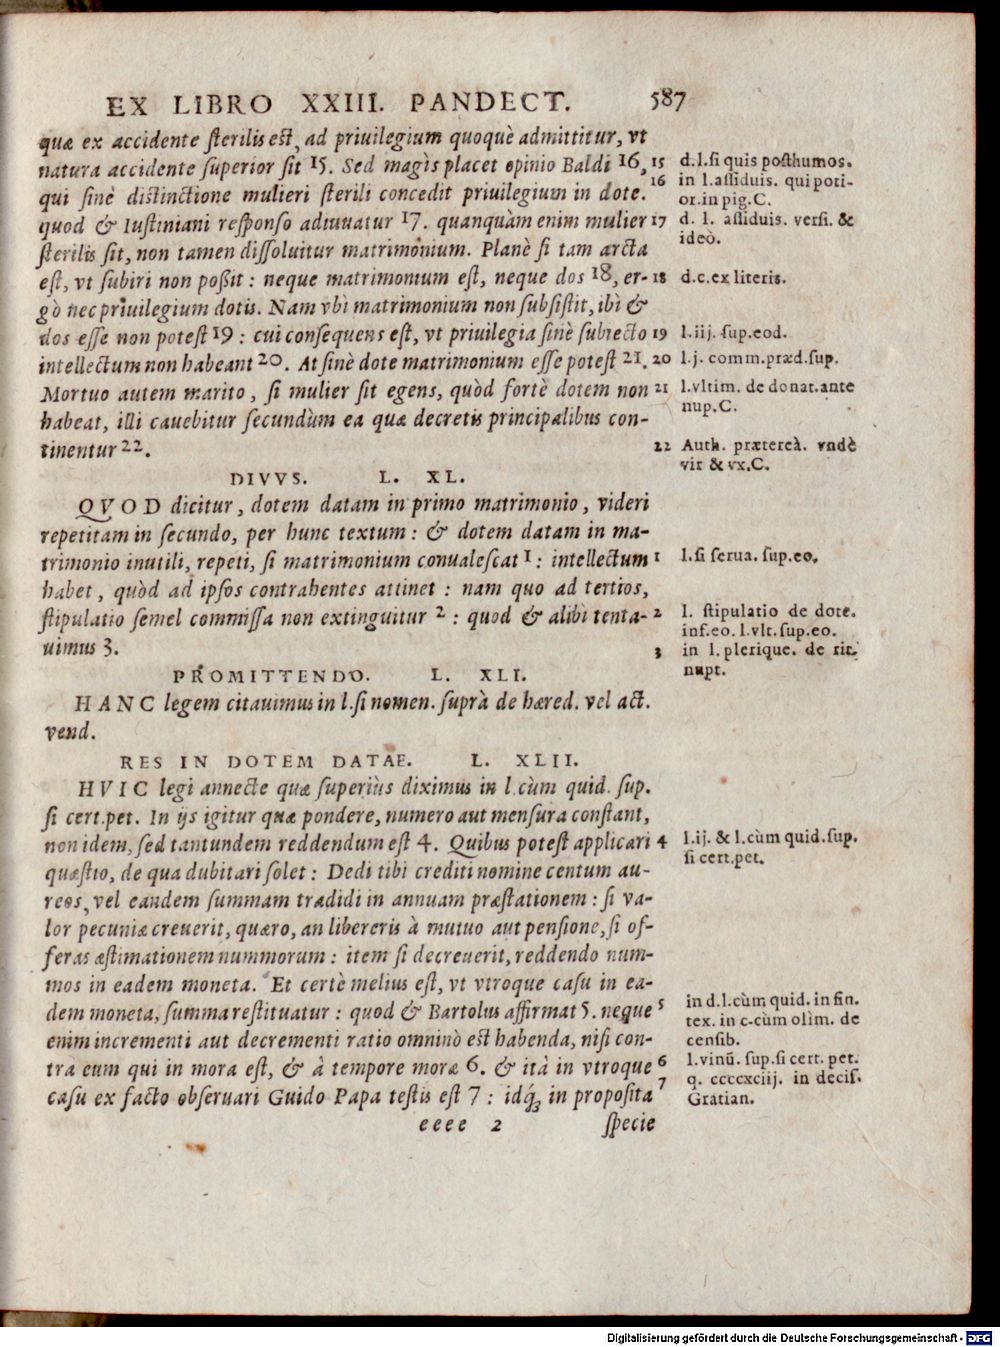 EX LIBRO XXIII. PANDECT. 587
quæ ex accidente sterilis est, ad priuilegium quoquè admittitur, vt
natura accidente superior sit 15. Sed magìs placet opinio Baldi 16,
qui sinè distinctione mulieri sterili concedit priuilegium in dote.
quod & Iustiniani responso adiuuatur 17. quanquàm enim mulier
sterilis sit, non tamen dissoluitur matrimonium. Planè si tam arcta
est, vt subiri non poßit: neque matrimonium est, neque dos 18, er-
gò nec priuilegium dotis. Nam vbì matrimonium non subsistit, ibì &
dos esse non potest 19: cui consequens est, vt priuilegia sinè subiecto
intellectum non habeant 20. At sinè dote matrimonium esse potest 21.
Mortuo autem marito, si mulier sit egens, quòd fortè dotem non
habeat, illi cauebitur secundùm ea quæ decretis principalibus con-
tinentur 22.
15 d.l.si quis posthumos.
16 in l.assiduis. qui poti-
or.in pig.C.
17 d. l. assiduis. versi. &
ideò.
18 d.c.ex literis.
19 l.iij. sup.eod.
20 l.j. comm.præd.sup.
21 l.vltim. de donat.ante
nup.C.
22 Auth. prætereà. vndè
vir & vx.C.
DIVVS. L. XL.
QVOD dicitur, dotem datam in primo matrimonio, videri
repetitam in secundo, per hunc textum: & dotem datam in ma-
trimonio inutili, repeti, si matrimonium conualescat 1: intellectum
habet, quòd ad ipsos contrahentes attinet: nam quo ad tertios,
stipulatio semel commissa non extinguitur 2: quod & alibì tenta-
uimus 3.
1 l.si serua. sup.eo.
2 l. stipulatio de dote.
inf.eo. l.vlt.sup.eo.
3 in l. plerique. de rit.
nupt.
PROMITTENDO. L. XLI.
HANC legem citauimus in l.si nomen. suprà de hæred. vel act.
vend.
RES IN DOTEM DATAE. L. XLII.
HVIC legi annecte quæ superiùs diximus in l.cùm quid. sup.
si cert.pet. In ijs igitur quæ pondere, numero aut mensura constant,
non idem, sed tantundem reddendum est 4. Quibus potest applicari
quæstio, de qua dubitari solet: Dedi tibi crediti nomine centum au-
reos, vel eandem summam tradidi in annuam præstationem: si va-
lor pecuniæ creuerit, quæro, an libereris à mutuo aut pensione, si of-
feras æstimationem nummorum: item si decreuerit, reddendo num-
mos in eadem moneta. Et certè melius est, vt vtroque casu in ea-
dem moneta, summa restituatur: quod & Bartolus affirmat 5. neque
enim incrementi aut decrementi ratio omninò est habenda, nisi con-
tra eum qui in mora est, & à tempore moræ 6. & ità in vtroque
casu ex facto obseruari Guido Papa testis est 7: idq́ꝫ in proposita
4 l.ij. & l.cùm quid.sup.
si cert.pet.
5 in d.l.cùm quid. in fin.
tex. in c-cùm olìm. de
censib.
6 l.vinũ. sup.si cert. pet.
7 q. ccccxciij. in decis.
Gratian.
eeee 2 specie
Digitalisierung gefördert durch die Deutsche Forschungsgemeinschaft - DFG